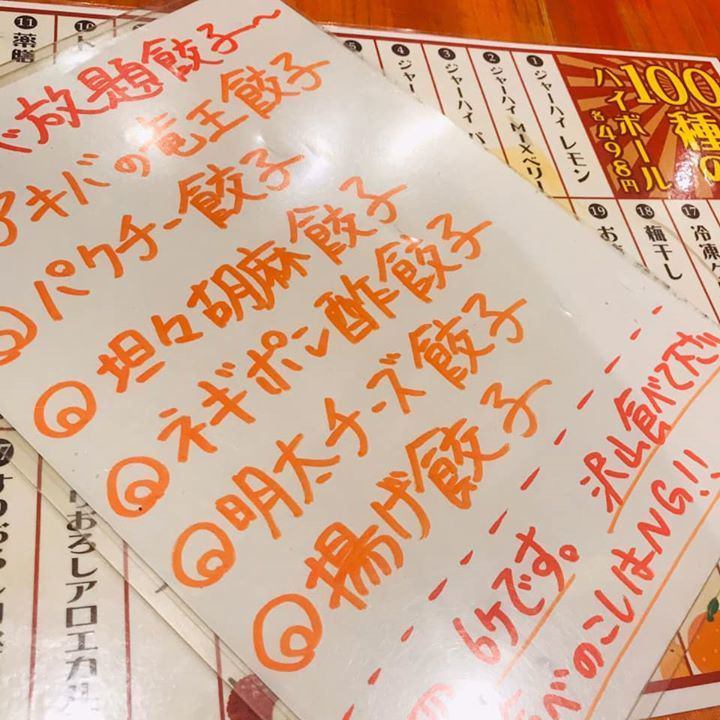 べ放題餃子〜
アキバの竜王餃子
◎パクチー餃子
◎坦々胡麻餃子
◎ネギポン酢餃子
◎明太チーズ餃子
◎揚げ餃子
6ケです。
沢山食べて下さ
べのこしはNG!!
100種の
ハイボール
各498円
1 ジャーハイ レモン
2 ジャーハイ MXベリー
3 ジャーハイ パ
4 ジャーハイ
5
11 薬膳
10
17 冷凍
18 梅干し
19 お
すりおろし
りおろしアロエカル